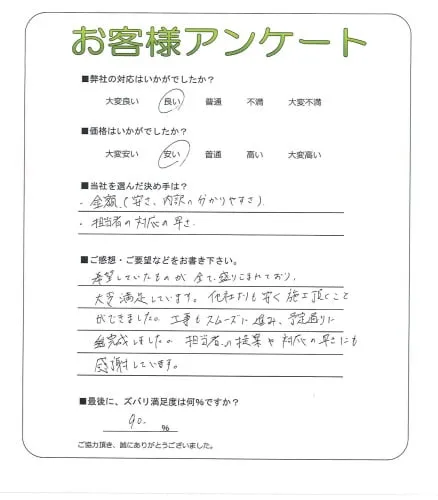 お客様アンケート
■弊社の対応はいかがでしたか?
大変良い 良い 普通 不満 大変不満
■価格はいかがでしたか?
大変安い 安い 普通 高い 大変高い
■当社を選んだ決め手は?
・金額(安さ、内訳の分かりやすさ)
・担当者の対応の早さ
■ご感想・ご要望などをお書き下さい。
希望していたものが全て盛りこまれており、
大変満足しています。他社よりも安く施工頂くこと
ができました。工事もスムーズに進み、予定通りに
完成しました。担当者の提案や対応の早さにも
感謝しています。
■最後に、ズバリ満足度は何%ですか?
90. %
ご協力頂き、誠にありがとうございました。